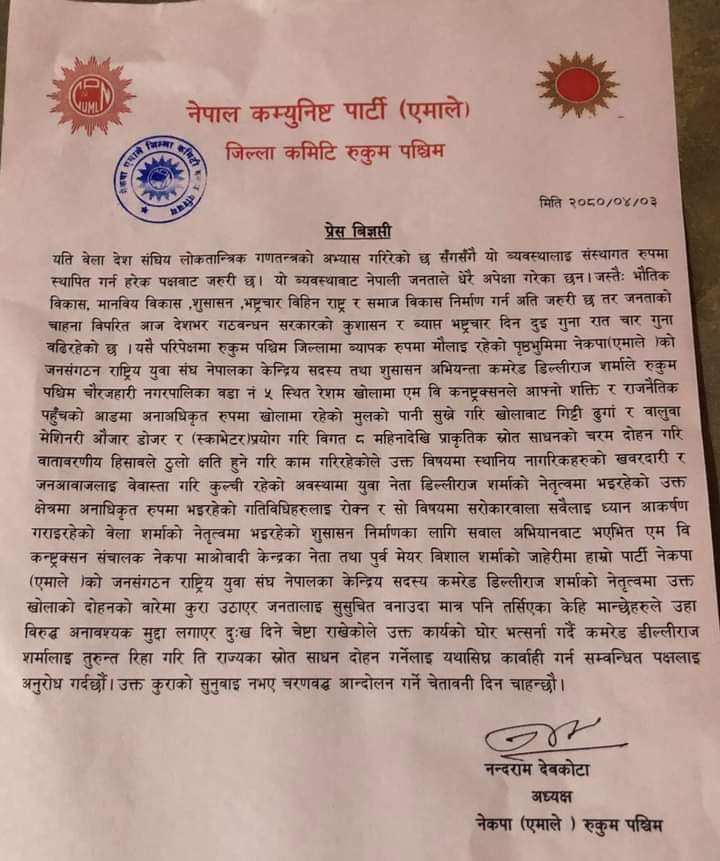 नेपाल कम्युनिष्ट पार्टी (एमाले)
जिल्ला कमिटि रुकुम पश्चिम
मिति २०८०/०४/०३
प्रेस बिज्ञप्ती
यति वेला देश संघिय लोकतान्त्रिक गणतन्त्रको अभ्यास गरिरेको छ सँगसँगै यो व्यवस्थालाइ संस्थागत रुपमा
स्थापित गर्न हरेक पक्षवाट जरुरी छ। यो व्यवस्थावाट नेपाली जनताले धेरै अपेक्षा गरेका छन।जस्तैः भौतिक
विकास, मानविय विकास ,शुसासन ,भष्ट्रचार विहिन राष्ट्र र समाज विकास निर्माण गर्न अति जरुरी छ तर जनताको
चाहना विपरित आज देशभर गठवन्धन सरकारको कुशासन र व्याप्त भष्ट्रचार दिन दुइ गुना रात चार गुना
वढिरहेको छ ।यसै परिपेक्षमा रुकुम पश्चिम जिल्लामा व्यापक रुपमा मौलाइ रहेको पृष्ठभुमिमा नेकपा(एमाले )को
जनसंगठन राष्ट्रिय युवा संघ नेपालका केन्द्रिय सदस्य तथा शुसासन अभियन्ता कमरेड डिल्लीराज शर्माले रुकुम
पश्चिम चौरजहारी नगरपालिका वडा नं ५ स्थित रेशम खोलामा एम वि कनष्ट्रक्सनले आफ्नो शक्ति र राजनैतिक
पहुँचको आडमा अनाअधिकृत रुपमा खोलामा रहेको मुलको पानी सुख्ने गरि खोलावाट गिट्टी ढुगां र वालुवा
मेशिनरी औजार डोजर र (स्काभेटर)प्रयोग गरि विगत ८ महिनादेखि प्राकृतिक स्रोत साधनको चरम दोहन गरि
वातावरणीय हिसावले ठुलो क्षति हुने गरि काम गरिरहेकोले उक्त विषयमा स्थानिय नागरिकहरुको खवरदारी र
जनआवाजलाइ वेवास्ता गरि कुल्ची रहेको अवस्थामा युवा नेता डिल्लीराज शर्माको नेतृत्वमा भइरहेको उक्त
क्षेत्रमा अनाधिकृत रुपमा भइरहेको गतिविधिहरुलाइ रोक्न र सो विषयमा सरोकारवाला सवैलाइ ध्यान आकर्षण
गराइरहेको वेला शर्माको नेतृत्वमा भइरहेको शुसासन निर्माणका लागि सवाल अभियानवाट भएभित एम वि
कन्ष्ट्रक्सन संचालक नेकपा माओवादी केन्द्रका नेता तथा पुर्व मेयर विशाल शर्माको जाहेरीमा हाम्रो पार्टी नेकपा
(एमाले )को जनसंगठन राष्ट्रिय युवा संघ नेपालका केन्द्रिय सदस्य कमरेड डिल्लीराज शर्माको नेतृत्वमा उक्त
खोलाको दोहनको वारेमा कुरा उठाएर जनतालाइ सुसुचित वनाउदा मात्र पनि तर्सिएका केहि मान्छेहरुले उहा
विरुद्ध अनावश्यक मुद्दा लगाएर दुःख दिने चेष्टा राखेकोले उक्त कार्यको घोर भत्सर्ना गर्दै कमरेड डील्लीराज
शर्मालाइ तुरुन्त रिहा गरि ति राज्यका स्रोत साधन दोहन गर्नेलाइ यथासिघ्र कार्वाही गर्न सम्वन्धित पक्षलाइ
अनुरोध गर्दछौं।उक्त कुराको सुनुवाइ नभए चरणवद्ध आन्दोलन गर्ने चेतावनी दिन चाहन्छौ।
नन्दराम देवकोटा
अध्यक्ष
नेकपा (एमाले ) रुकुम पश्चिम